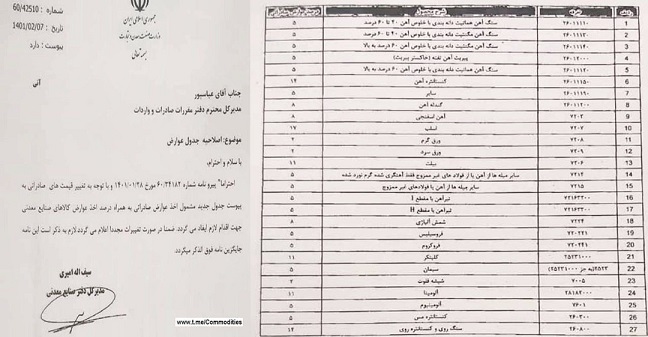 جمهوری اسلامی ایران
وزارت صنعت، معدن و تجارت
بسمه تعالی
شماره : 60/42510
تاریخ : 1401/02/07
پیوست : دارد
آنی
جناب آقای عباسپور
مدیرکل محترم دفتر مقررات صادرات و واردات
موضوع: اصلاحیه جدول عوارض
با سلام و احترام،
احتراما" پیرو نامه شماره ۶۰/۳۴۱۸۲ مورخ ۱۴۰۱/۰۱/۲۸ و با توجه به تغییر قیمت های صادراتی به
پیوست جدول جدید مشمول اخذ عوارض صادراتی به همراه درصد اخذ عوارض کالاهای صنایع معدنی
جهت اقدام لازم ایفاد می گردد. ضمنا در صورت تغییرات مجددا اعلام می گردد.لازم به ذکر است این نامه
جایگزین نامه فوق الذکر میگردد.
سیف اله امیری
مدیرکل دفتر صنایع معدنی
www.t.me/Commodities
ردیف تعرفه شرح محصول درصد عوارض صادراتی
1 ۲۶۰۱۱۱۱۰ سنگ آهن هماتیت دانه بندی با خلوص آهن ۴۰ تا ۶۰ درصد ۵
2 سنگ آهن مگنتیت دانه بندی با خلوص آهن ۴۰ تا ۶۰ درصد ۵
3 سنگ آهن مگنتیت دانه بندی با خلوص آهن ۶۰ درصد به بالا ۵
4 ۲۶۰۱۲۰۰۰ پیریت آهن تفته (خاکستر پیریت) ۵
5 سنگ آهن هماتیت دانه بندی با خلوص آهن ۶۰ درصد به بالا ۵
6 ۲۶۰۱۱۱۵۰ کنسانتره آهن ۱۴
7 ۲۶۰۱۱۱۹۰ سایر ۵
8 ۲۶۰۱۱۲۰۰ گندله آهن ۸
9 ۷۲۰۳ آهن اسفنجی ۸
10 ۷۲۰۷ اسلب ۱۷
11 ۷۲۰۸ ورق گرم ۲
12 ۷۲۰۹ ورق سرد ۲
13 ۷۲۰۶ بیلت ۱۱
14 ۷۲۱۴ سایر میله ها از آهن یا از فولاد های غیر ممزوج فقط آهنگری شده گرم نورد شده ۵
15 ۷۲۱۵ سایر میله ها از آهن یا فولادهای غیر ممزوج ۵
16 ۷۲۱۶۳۲۰۰ تیرآهن با مقطع I ۵
17 ۷۲۱۶۳۳۰۰ تیرآهن با مقطع H ۵
18 ۷۲۲۴ شمش آلیاژی ۸
19 فروسیلیس ۵
20 ۷۲۰۲۴۱ فروکروم ۵
21 ۲۵۲۳۱۰۰۰ کلینکر ۱۱
22 ۲۵۲۳(به جز ۲۵۲۳۱۰۰۰) سیمان ۵
23 ۷۰۰۵ شیشه فلوت ۲
24 ۲۸۱۸۲۰۰۰ آلومینا ۱۱
25 ۷۶۰۱ آلومینیوم ۵
26 ۲۶۰۳۰۰ کنسانتره مس ۵
27 ۲۶۰۸۰۰ سنگ روی و کنسانتره روی ۱۴